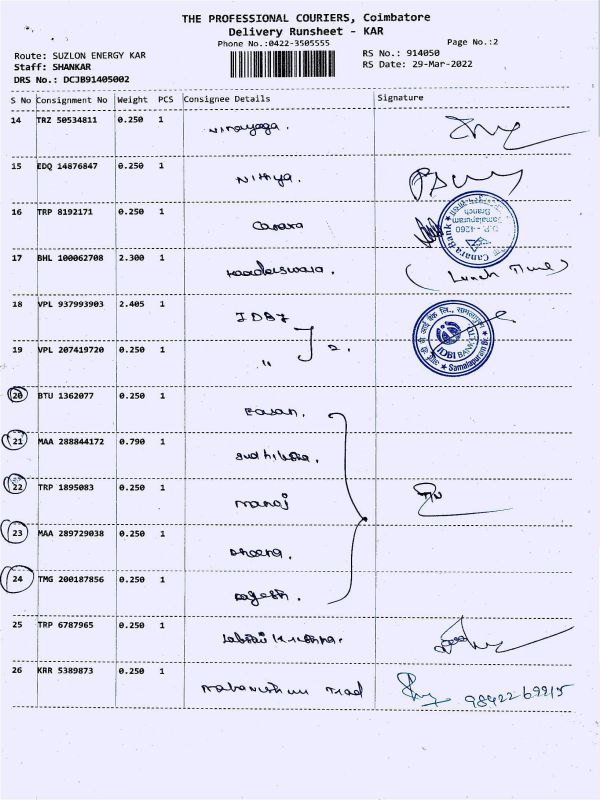 THE PROFESSIONAL COURIERS, Coimbatore
Delivery Runsheet - KAR
Phone No.:0422-3505555
Page No.:2
Route: SUZLON ENERGY KAR
RS No.: 914050
Staff: SHANKAR
RS Date: 29-Mar-2022
DRS No.: DCJB91405002
S No Consignment No Weight PCS Consignee Details Signature
14 TRZ 50534811 0.250 1 Vinayaga.
15 EDQ 14876847 0.250 1 Nithya.
16 TRP 8192171 0.250 1 Canara
Canara Bank
D.P. - 4260
Samalapuram
Branch
17 BHL 100062708 2.300 1 (Lunch Time)
18 VPL 937993903 2.405 1 IDBI
19 VPL 207419720 0.250 1 " 2.
IDBI BANK LTD
Samalapuram Br.
20 BTU 1362077 0.250 1 Easan.
21 MAA 288844172 0.790 1
22 TRP 1895083 0.250 1 Manoj
23 MAA 289729038 0.250 1
24 TMG 200187856 0.250 1
25 TRP 6787965 0.250 1
26 KRR 5389873 0.250 1